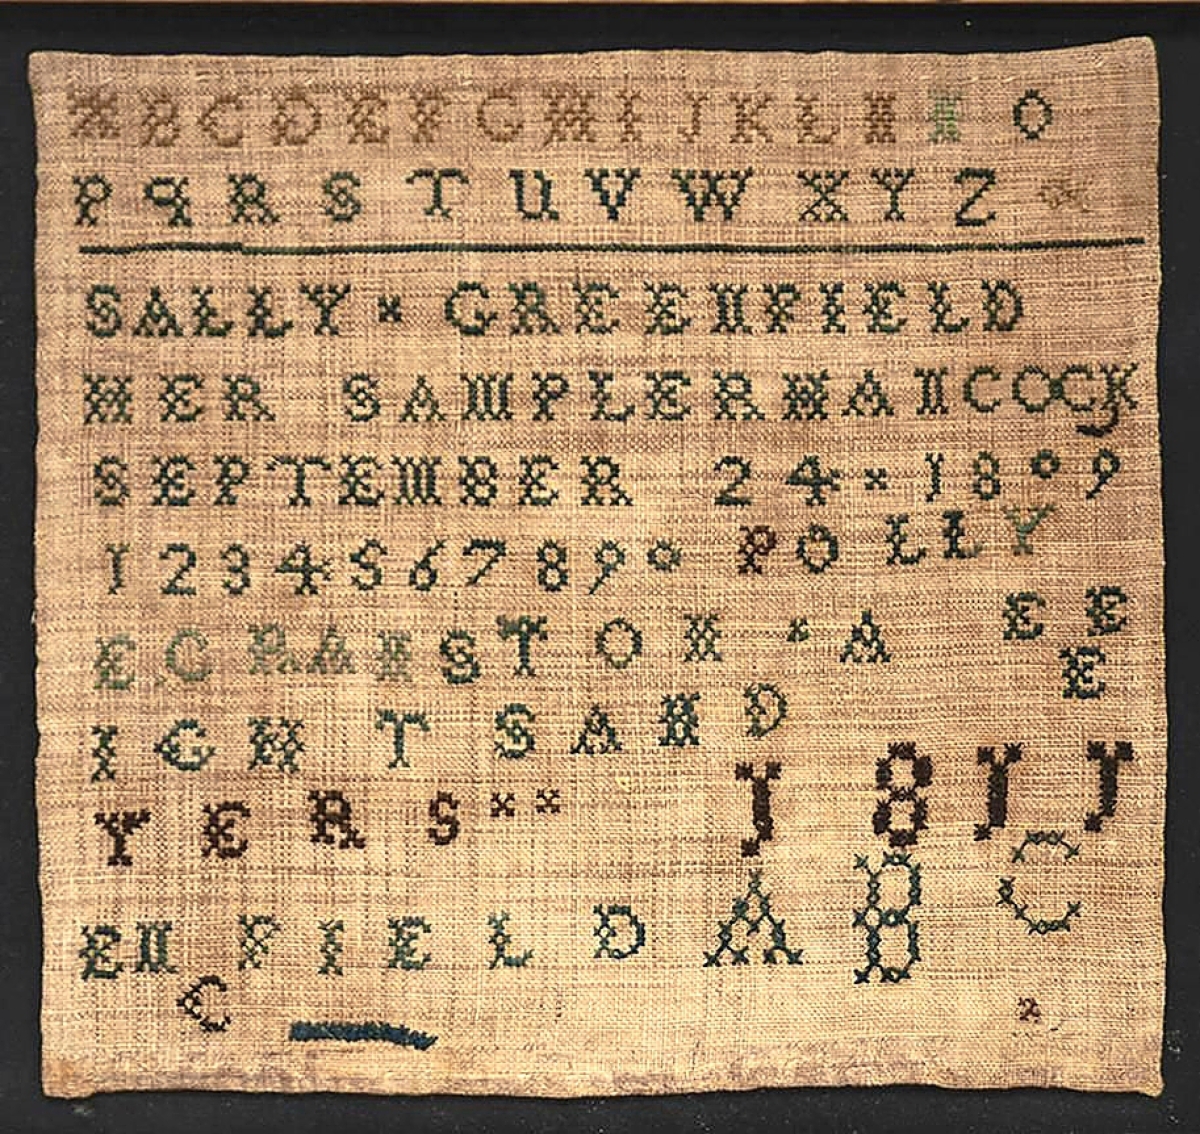 A B C D E F G H I J K L M N O
P Q R S T U V W X Y Z
SALLY × GREENFIELD
HER SAMPLER HANCOCK
SEPTEMBER 24 × 1809
1 2 3 4 5 6 7 8 9 0 POLLY
E CRANSTON × A E E
E
I G H T S A N D
YERS × × 1811
ENFIELD A B C
C